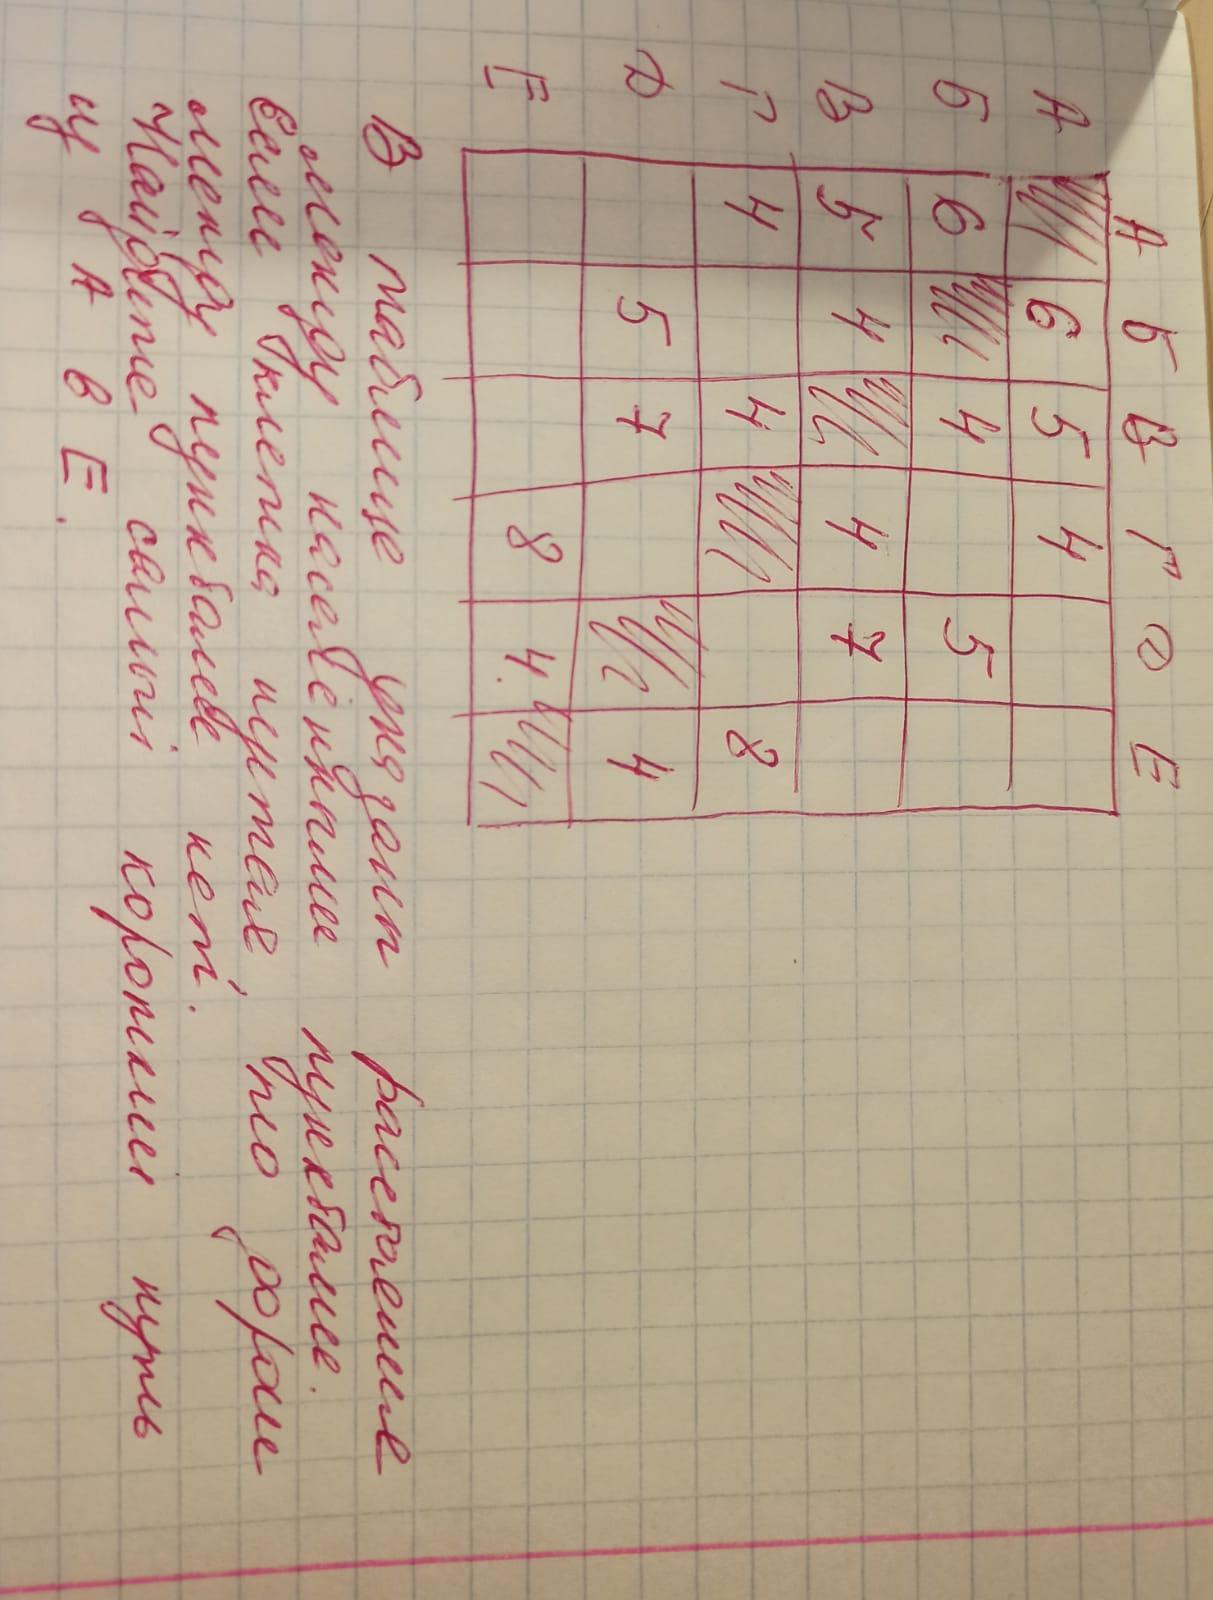 А Б В Г Д Е
А 6 5 4
Б 6 4 5
В 5 4 4 7
Г 4 4 8
Д 5 7 4
Е 8 4.
В таблице указаны расстояния
между населёнными пунктами.
Если клетка пустая, то дороги
между пунктами нет.
Найдите самый короткий путь
из А в Е.